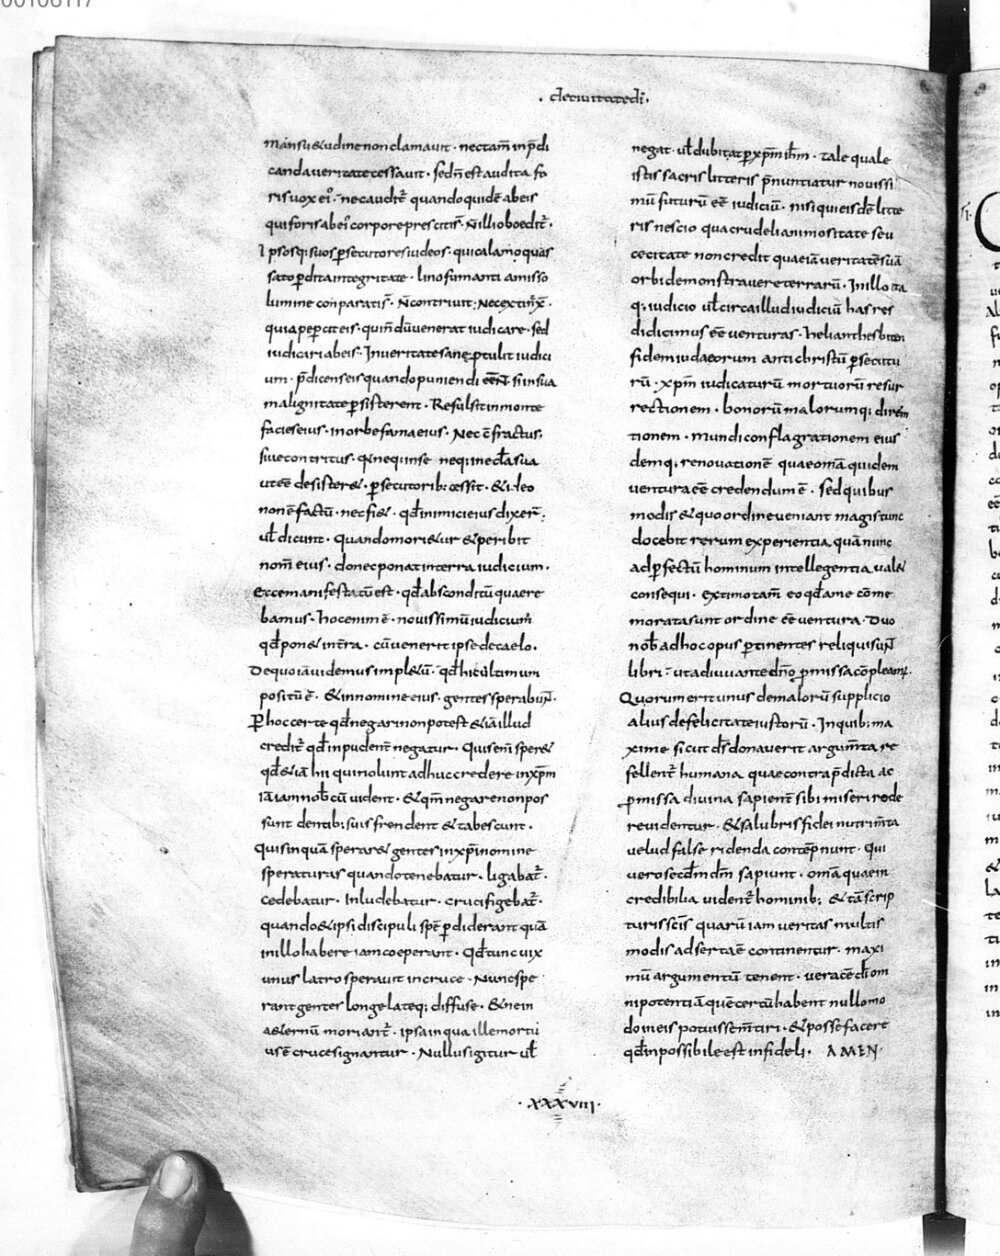 · deciuitatedi̅ ·
mansu&udine non clamauit · nec tam̅ in p̅di
canda ueritate cessauit · sed n̅ est audita fo
ris uox ei᾽ · nec audit᷑ quando quide̅ ab eis
qui foris ab ei᾽ corpore prescitis̅ · n̅ illi oboedit᷑ ·
Ipsosq; suos p̲secutores iudeos · qui calamo quas
sato p̲dita integritate · lino fumanti amisso
lumine conparatis̅ · n̅ contriuit · nec extinx̅ ·
quia pep̲cit eis · qui n̅du̅ uenerat iudicare · sed
iudicari ab eis · In ueritate sane p̲tulit iudici
um · p̅dicens eis quando puniendi ee̅N̅ · si in sua
malignitate p̲sisterent · Refulsit in monte
facies eius · in orbe fama eius · Nec e̅ fractus ·
siue contritus · q̅ neq; in se neq; in eccl̅a sua
ut ee̅ desister& · p̲secutorib; cessit · & i᷑deo
non e̅ factu̅ · nec fi& · qd̅ inimici eius dixer̅ ;
ul̅ dicunt · Quando mori&ur & peribit
nom̅ eius · donec ponat in terra iudicium ·
Ecce manifestatu̅ est · qd̅ absconditu̅ quaere
bamus · hoc enim e̅ · nouissimu̅ iudiciu̅
qd̅ pon& in t̅ra · cu̅ uenerit ipse de caelo ·
De quo ia̅ uidemus impl&u̅ · qd̅ hic ultimum
positu̅ e̅ · & in nomine eius · gentes sperabuN̅ ·
P̲ hoc certe qd̅ negari non potest &ia̅ illud
credit᷑ qd̅ inpudent̅ negatur · Quis eni̅ sper&
qd̅ &ia̅ hii qui nolunt adhuc credere in xp̅m
ia̅ iam nob̅ cu̅ uident · & qm̅ negare non pos
sunt dentib; suis frendent & tabescunt ·
Quis inqua̅ sperar& gentes in xp̅i nomine
speraturas quando tenebatur · ligabat᷑ ·
cedebatur · Inludebatur · crucifigebat᷑ ·
quando & ipsi discipuli spe̅ p̲diderant qua̅
in illo habere iam coeperant · Qd̅ tunc uix
unus latro sperauit in cruce · Nunc spe
rant gentes longe lateq; diffuse · & ne in
a&ernu̅ moriant᷑ · ipsa in qua ille mortu
us e̅ cruce signantur · Nullus igitur ul̅
negat · ul̅ dubitat p̲ xp̅m ih̅m · tale quale
istis sacris litteris p̅nuntiatur nouissi
mu̅ futuru̅ ee̅ iudiciu̅ · nisi qui eisde̅ litte
ris nescio qua crudeli animositate seu
cecitate non credit quae ia̅ ueritate̅ sua̅
orbi demonstrauere terraru̅ · In illo ita
q; iudicio ul̅ circa illud iudiciu̅ has res
didicimus ee̅ uenturas · helian thesbiten
fidem iudaeorum antichristu̅ p̲secutu
ru̅ · xp̅m iudicaturu̅ mortuoru̅ resur
rectionem · bonoru̅ malorumq; direm̅
tionem · mundi conflagrationem eius
demq; renouatione̅ quae om̅a quidem
uentura ee̅ credendum e̅ · Sed quibus
modis & quo ordine ueniant magis tunc
docebit rerum experientia, qua̅ nunc
ad p̲fectu̅ hominum intellegentia ual&
consequi · existimo tam̅ eo qd̅ a me co̅me
morata sunt ordine ee̅ uentura · Duo
nob̅ ad hoc opus p̲tinentes reliqui suN̅
libri · ut adiuuante dn̅o p̲missa co̅pleam᷑ ·
Quorum erit unus de maloru̅ supplicio
alius de felicitate iustoru̅ · In quib; ma
xime sicut ds̅ donauerit argum̅ta re
fellent᷑ humana, quae contra p̅dicta ac
p̲missa diuina sapient̅ sibi miseri rode
re uidentur · & salubris fidei nutrim̅ta
uelud falsa & ridenda conte̅pnunt · Qui
uero secd̅m dm̅ sapiunt · om̅a quae in
credibilia uident᷑ hominib; & ta̅ scrip
turis sc̅is quaru̅ iam ueritas multis
modis adserta e̅ continentur · maxi
mu̅ argumentu̅ tenent · uerace̅ di̅ om
nipotentia̅ que̅ certu̅ habent nullo mo
do in eis potuisse m̅tiri · & posse facere
qd̅ inpossibile est infideli · AMEN ·
· XXXVIII ·